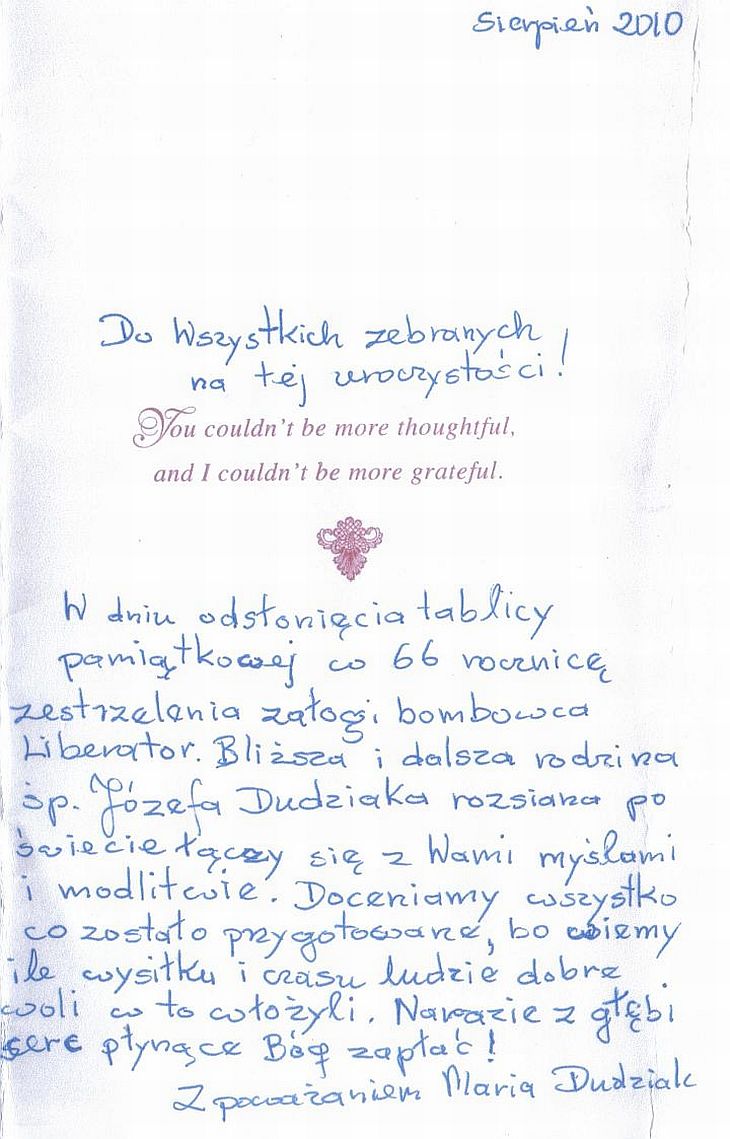 Sierpień 2010
Do Wszystkich zebranych
na tej uroczystości!
You couldn't be more thoughtful,
and I couldn't be more grateful.
W dniu odsłonięcia tablicy
pamiątkowej w 66 rocznicę
zestrzelenia załogi bombowca
Liberator. Bliższa i dalsza rodzina
śp. Józefa Dudziaka rozsiana po
świecie łączy się z Wami myślami
i modlitwie. Doceniamy wszystko
co zostało przygotowane, bo wiemy
ile wysiłku i czasu ludzie dobre
woli w to włożyli. Narazie z głębi
serc płynące Bóg zapłać!
Z poważaniem Maria Dudziak